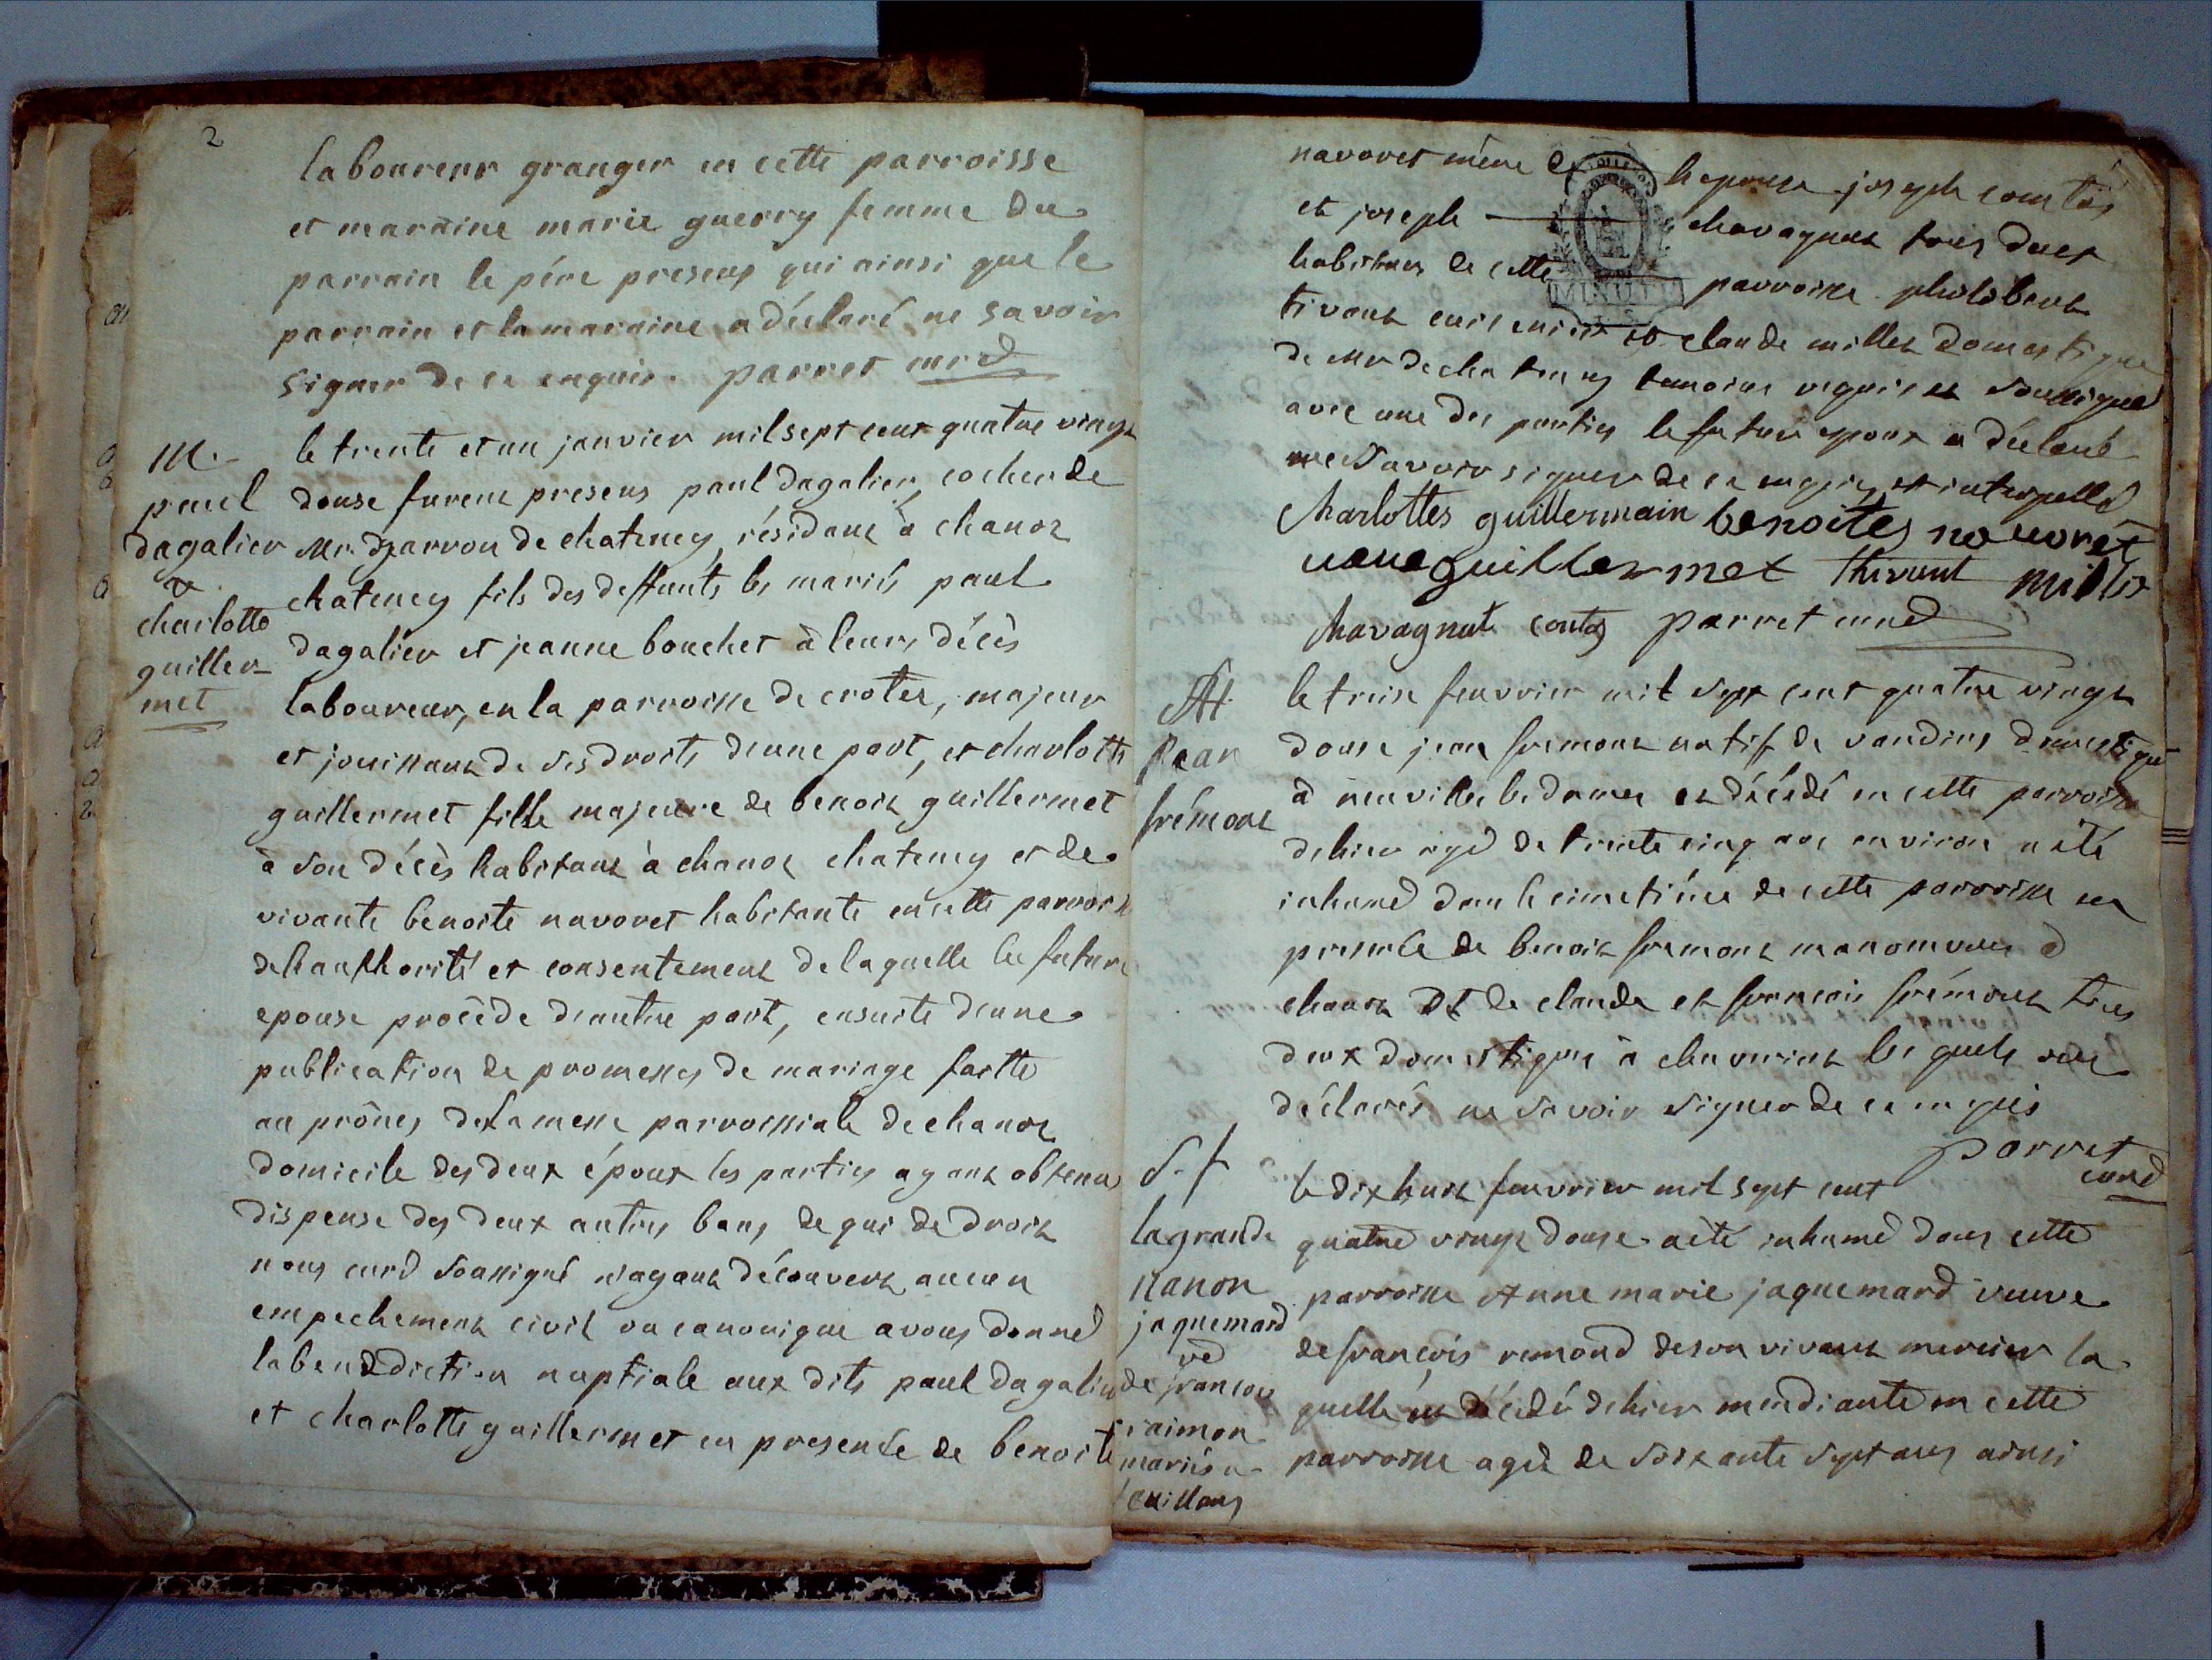 2
laboureur granger en cette parroisse
et maraine marie guerry femme du
parrain le pére presens qui ainsi que le
parrain et la maraine a déclaré ne savoir
signer de ce enquis. parret curé
M.
paul
dagalier
&
charlotte
guiller-
met
le trente et un janvier mil sept cent quatre vingt
douse furent presens paul dagalier, cocher de
Mr. de chateney, résidant à chanoz
chateney fils des deffunts les mariés paul
dagalier et jeanne bouchet à leurs décès
laboureur, en la parroisse de crotes, majeur
et jouissant de ses droits d'une part, et charlotte
guillermet fille majeure de benoit guillermet
à son décès habitant à chanoz chateney et de
vivante benoite navoret habitante en cette parroisse
de l'authorité et consentement de laquelle la future
epouse procède d'autre part, ensuite d'une
publication de promesses de mariage faitte
au prônes de la messe parroissiale de chanoz
domicile des deux époux les parties ayant obtenu
dispense des deux autres bans de qui de droit
nous curé soussigné n'ayant découvert aucun
empechement civil ou canonique avons donné
la benediction nuptiale aux dits paul dagalier
et charlotte guillermet en presence de benoite
navoret mère de l'epouse joseph comtes
et joseph chavagnat tous deux
habitans de cette parroisse philibert
tivant cuisinier et claude millet domestique
de Mr de chateney temoins requis et soussignés
avec une des parties le futur epoux a déclaré
ne savoir signer de ce enquis et interpellé
MINUTE
Charlottes guillermain benoites navoret
guillermet thivant millet
Chavagnat contes parret curé
St
Jean
frémont
le treise feuvrier mil sept cent quatre vingt
douse jean fremont natif de vandins domestique
à neuville les dames est décédé en cette parroisse
d'hier agé de trente cinq ans environ a été
inhumé dans le cimetière de cette parroisse en
presence de benoit fremont manoeuvre à
chanoz et de claude et francois frémont tous
deux domestiques à chaveriat les quels ont
déclarés ne savoir signer de ce enquis
parret
curé
S. f
la grande
nanon
jaquemard
vé
de francois
raimon
mariés a
le dix huit feuvrier mil sept cent
quatre vingt douse a été inhumé dans cette
parroisse Anne marie jaquemard veuve
de françois remond de son vivant mercier la
quelle est décédé d'hier mendiante en cette
parroisse agée de soixante sept ans ainsi